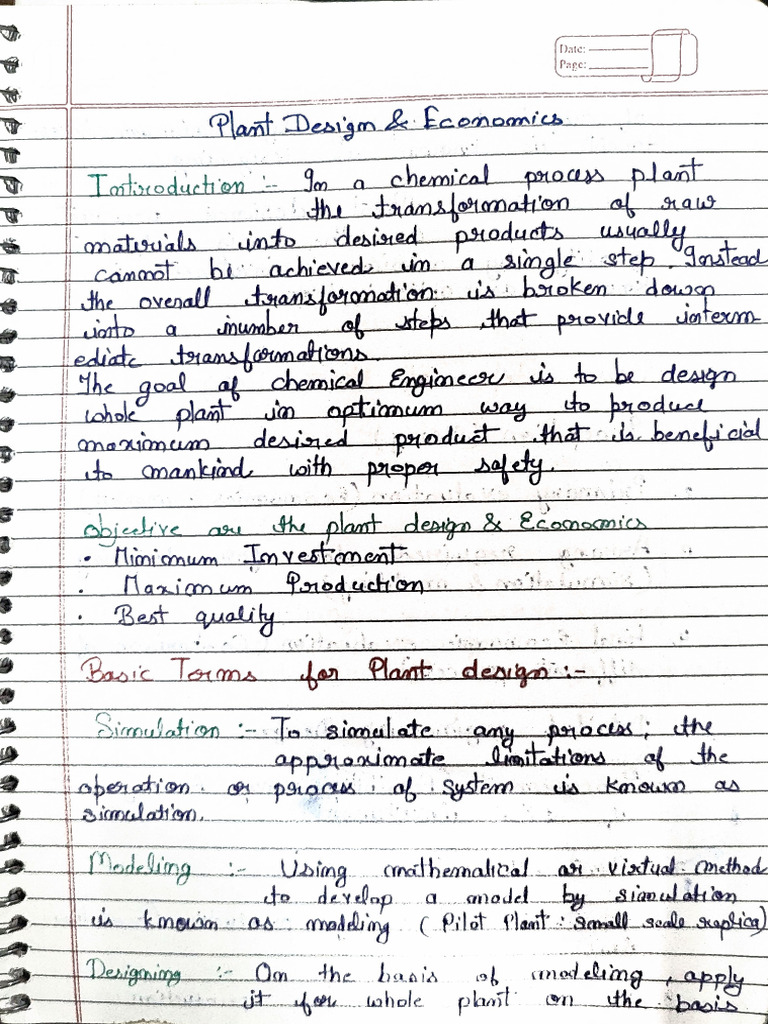 Date:
Page:
Plant Design & Economics
Introduction :- In a chemical process plant
the transformation of raw
materials into desired products usually
cannot be achieved in a single step. Instead
the overall transformation is broken down
into a number of steps that provide interm
ediate transformations.
The goal of chemical Engineer is to be design
whole plant in optimum way to produce
maximum desired product that is beneficial
to mankind with proper safety.
objective are the plant design & Economics
• Minimum Investment
• Maximum Production
• Best quality
Basic Terms for Plant design :-
Simulation :- To simulate any process; the
approximate limitations of the
operation or process of system is known as
simulation.
Modeling :- Using mathematical or virtual method
to develop a model by simulation
is known as modeling (Pilot Plant : small scale replica)
Designing :- On the basis of modeling, apply
it for whole plant on the basis